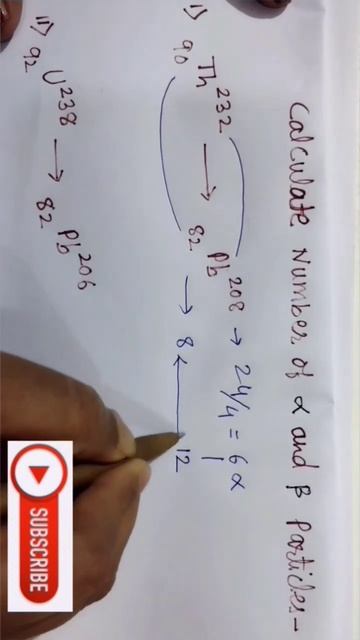 Calculate Number of α and β Particles-
i) ₉₀Th²³² → ₈₂Pb²⁰⁸ → 24/4 = 6α
→ 8 ← 12
ii) ₉₂U²³⁸ → ₈₂Pb²⁰⁶
SUBSCRIBE